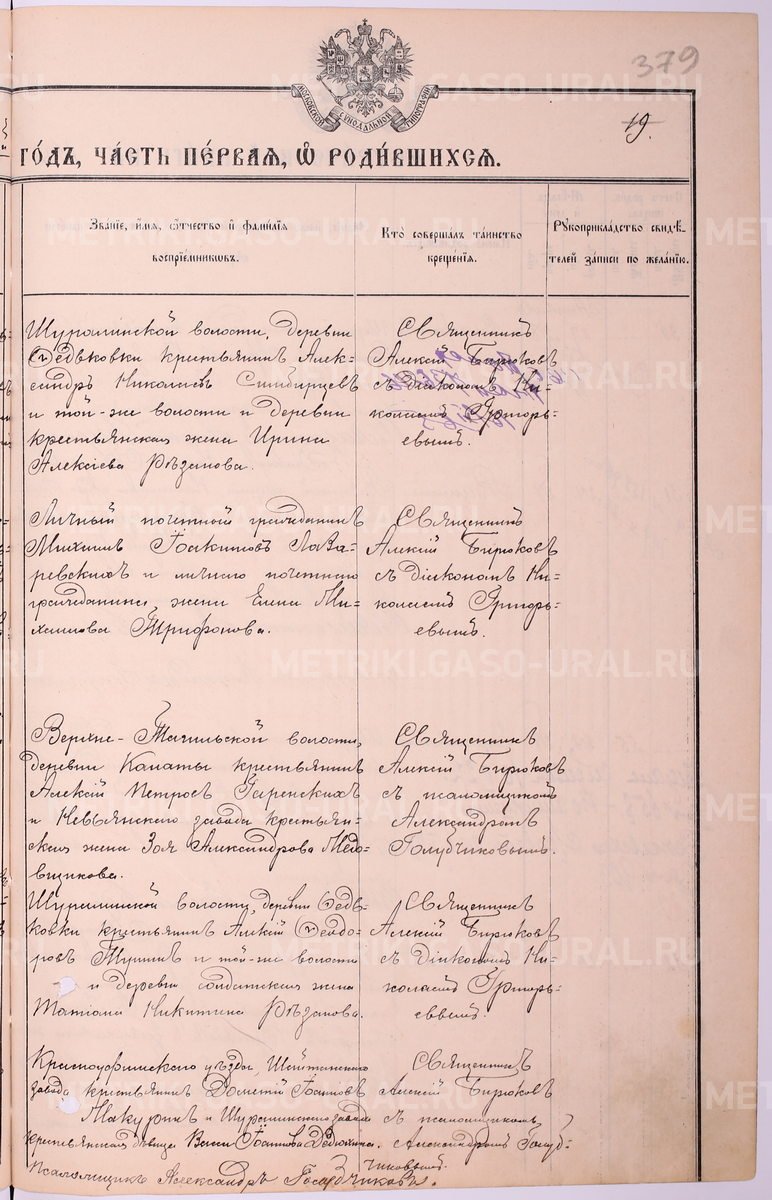 379
МОСКОВСКОЙ СѴНОДАЛЬНОЙ ТИПОГРАФІИ
19.
ГО́ДЪ, ЧА́СТЬ ПЕ́РВАЯ, Ѡ҆ РОДИ́ВШИХСЯ.
Зва́нїе, и҆́мя, ѻ҆́тчество и҆ фами́лїя
воспрїе́мниковъ.
Кто̀ соверша́лъ та́инство
креще́нїя.
Рꙋкоприкла́дство свидѣ́-
телей за́писи по жела́нїю.
Шуралинской волости, деревни
Ѳедьковки крестьянинъ Алек-
сандръ Николаевъ Симбирцевъ
и той-же волости и деревни
крестьянская жена Ирина
Алексіева Рѣзанова.
Священникъ
Алексій Бирюковъ
съ діакономъ Ни-
колаемъ Григорь-
евымъ.
Личный почетный гражданинъ
Михаилъ Іоакимовъ Лаза-
ревскихъ и личнаго почетнаго
гражданина жена Елена Ми-
хаилова Трифонова.
Священникъ
Алексій Бирюковъ
съ діакономъ Ни-
колаемъ Григорь-
евымъ.
Верхне-Тагильской волости,
деревни Копаты крестьянинъ
Алексій Петровъ Гаренскихъ
и Невьянского завода крестьян-
ская жена Зоя Александрова Медо-
вщикова.
Священникъ
Алексій Бирюковъ
съ псаломщикомъ
Александромъ
Голубчиковымъ.
Шуралинской волости, деревни Ѳедь-
ковки крестьянинъ Алексій Ѳеодо-
ровъ Тупинъ и той-же волости
и деревни солдатская жена
Татіана Никитина Рѣзанова.
Священникъ
Алексій Бирюковъ
съ діакономъ Ни-
колаемъ Григорь-
евымъ.
Красноуфимскаго уѣзда, Шайтанскаго
завода крестьянинъ Дометій Іоанновъ
Макуринъ и Шуралинскаго завода
крестьянская дѣвица Васса Іоаннова Дедюхина.
Священникъ
Алексій Бирюковъ
съ псаломщикомъ
Александромъ Голуб-
чиковымъ.
Псаломщикъ Александръ Голубчиковъ.
METRIKI.GASO-URAL.RU